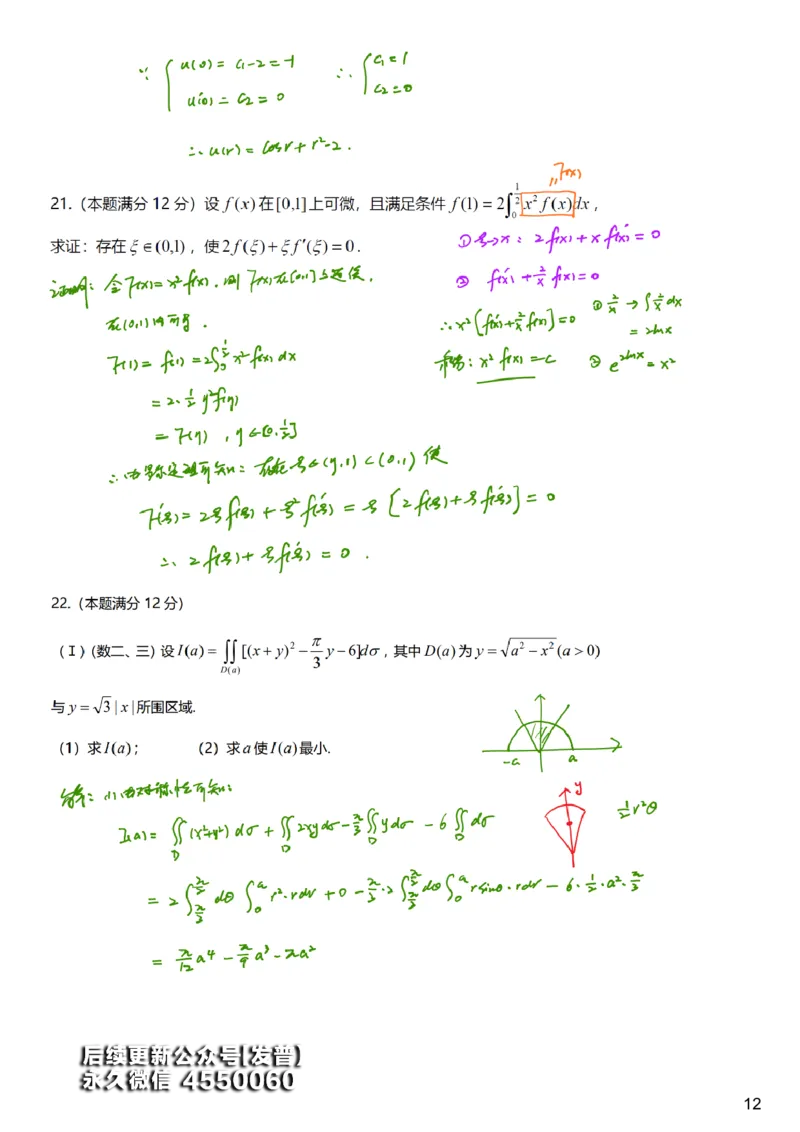 ∵ { u(0) = C₁-2 = -1    ∴ { C₁ = 1
u'(0) = C₂ = 0    C₂ = 0
∴ u(r) = cos r + r²-2.
F(x)
21.（本题满分 12 分）设 f(x) 在[0,1]上可微，且满足条件 f(1) = 2∫₀^{1/2} x² f(x)dx，
求证：存在 ξ∈(0,1)，使2f(ξ)+ξf′(ξ)=0.
① ξ→x: 2f(x)+xf'(x)=0
② f'(x)+2/x f(x)=0
∴ x²[f'(x)+2/x f(x)]=0
① 2/x → ∫2/x dx
= 2lnx
② e^{2lnx} = x²
积分: x² f(x) = C
证明: 令 F(x)=x²f(x). 则 F(x)在[0,1]上连续,
在(0,1)内可导.
F(1) = f(1) = 2∫₀^{1/2} x²f(x)dx
= 2·1/2 η²f(η)
= F(η) , η∈[0,1/2]
∴由罗尔定理可知: 存在ξ∈(η,1)⊂(0,1) 使
F'(ξ) = 2ξf(ξ) + ξ²f'(ξ) = ξ[2f(ξ)+ξf'(ξ)] = 0
∴ 2f(ξ)+ξf'(ξ) = 0 .
22.（本题满分 12 分）
（Ⅰ）（数二、三）设I(a)= ∬_{D(a)} [(x+y)² − π/3 y−6]dσ，其中D(a)为y= √(a²−x²)(a>0)
与y= √3|x|所围区域.
（1）求I(a)；    （2）求a使I(a)最小.
-a    a
y
1/2 r²θ
解: (1) 由对称性可知:
I(a)= ∬_D (x²+y²)dσ + ∬_D 2xydσ - π/3∬_D ydσ - 6∬_D dσ
= 2∫_{π/3}^{π/2} dθ ∫₀^a r²·rdr + 0 - π/3·2∫_{π/3}^{π/2} dθ∫₀^a rsinθ·rdr - 6·1/2·a²·π/3
= π/12 a⁴ - π/9 a³ - πa²
后续更新公众号[发普]
永久微信 4550060
12